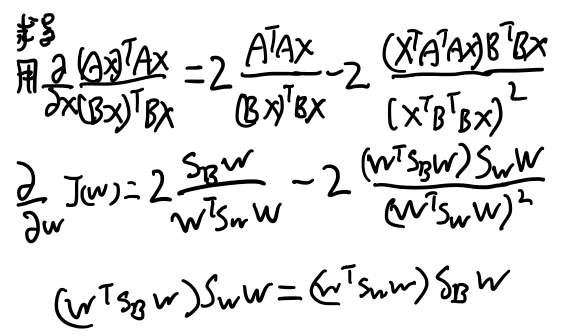 求导
用 ∂/∂x (Ax)ᵀAx/(Bx)ᵀBx = 2 AᵀAx/(Bx)ᵀBx − 2 (xᵀAᵀAx)BᵀBx/(xᵀBᵀBx)²
∂/∂w J(w) = 2 S_B w/wᵀS_w w − 2 (wᵀS_B w)S_w w/(wᵀS_w w)²
(wᵀS_B w)S_w w = (wᵀS_w w)S_B w